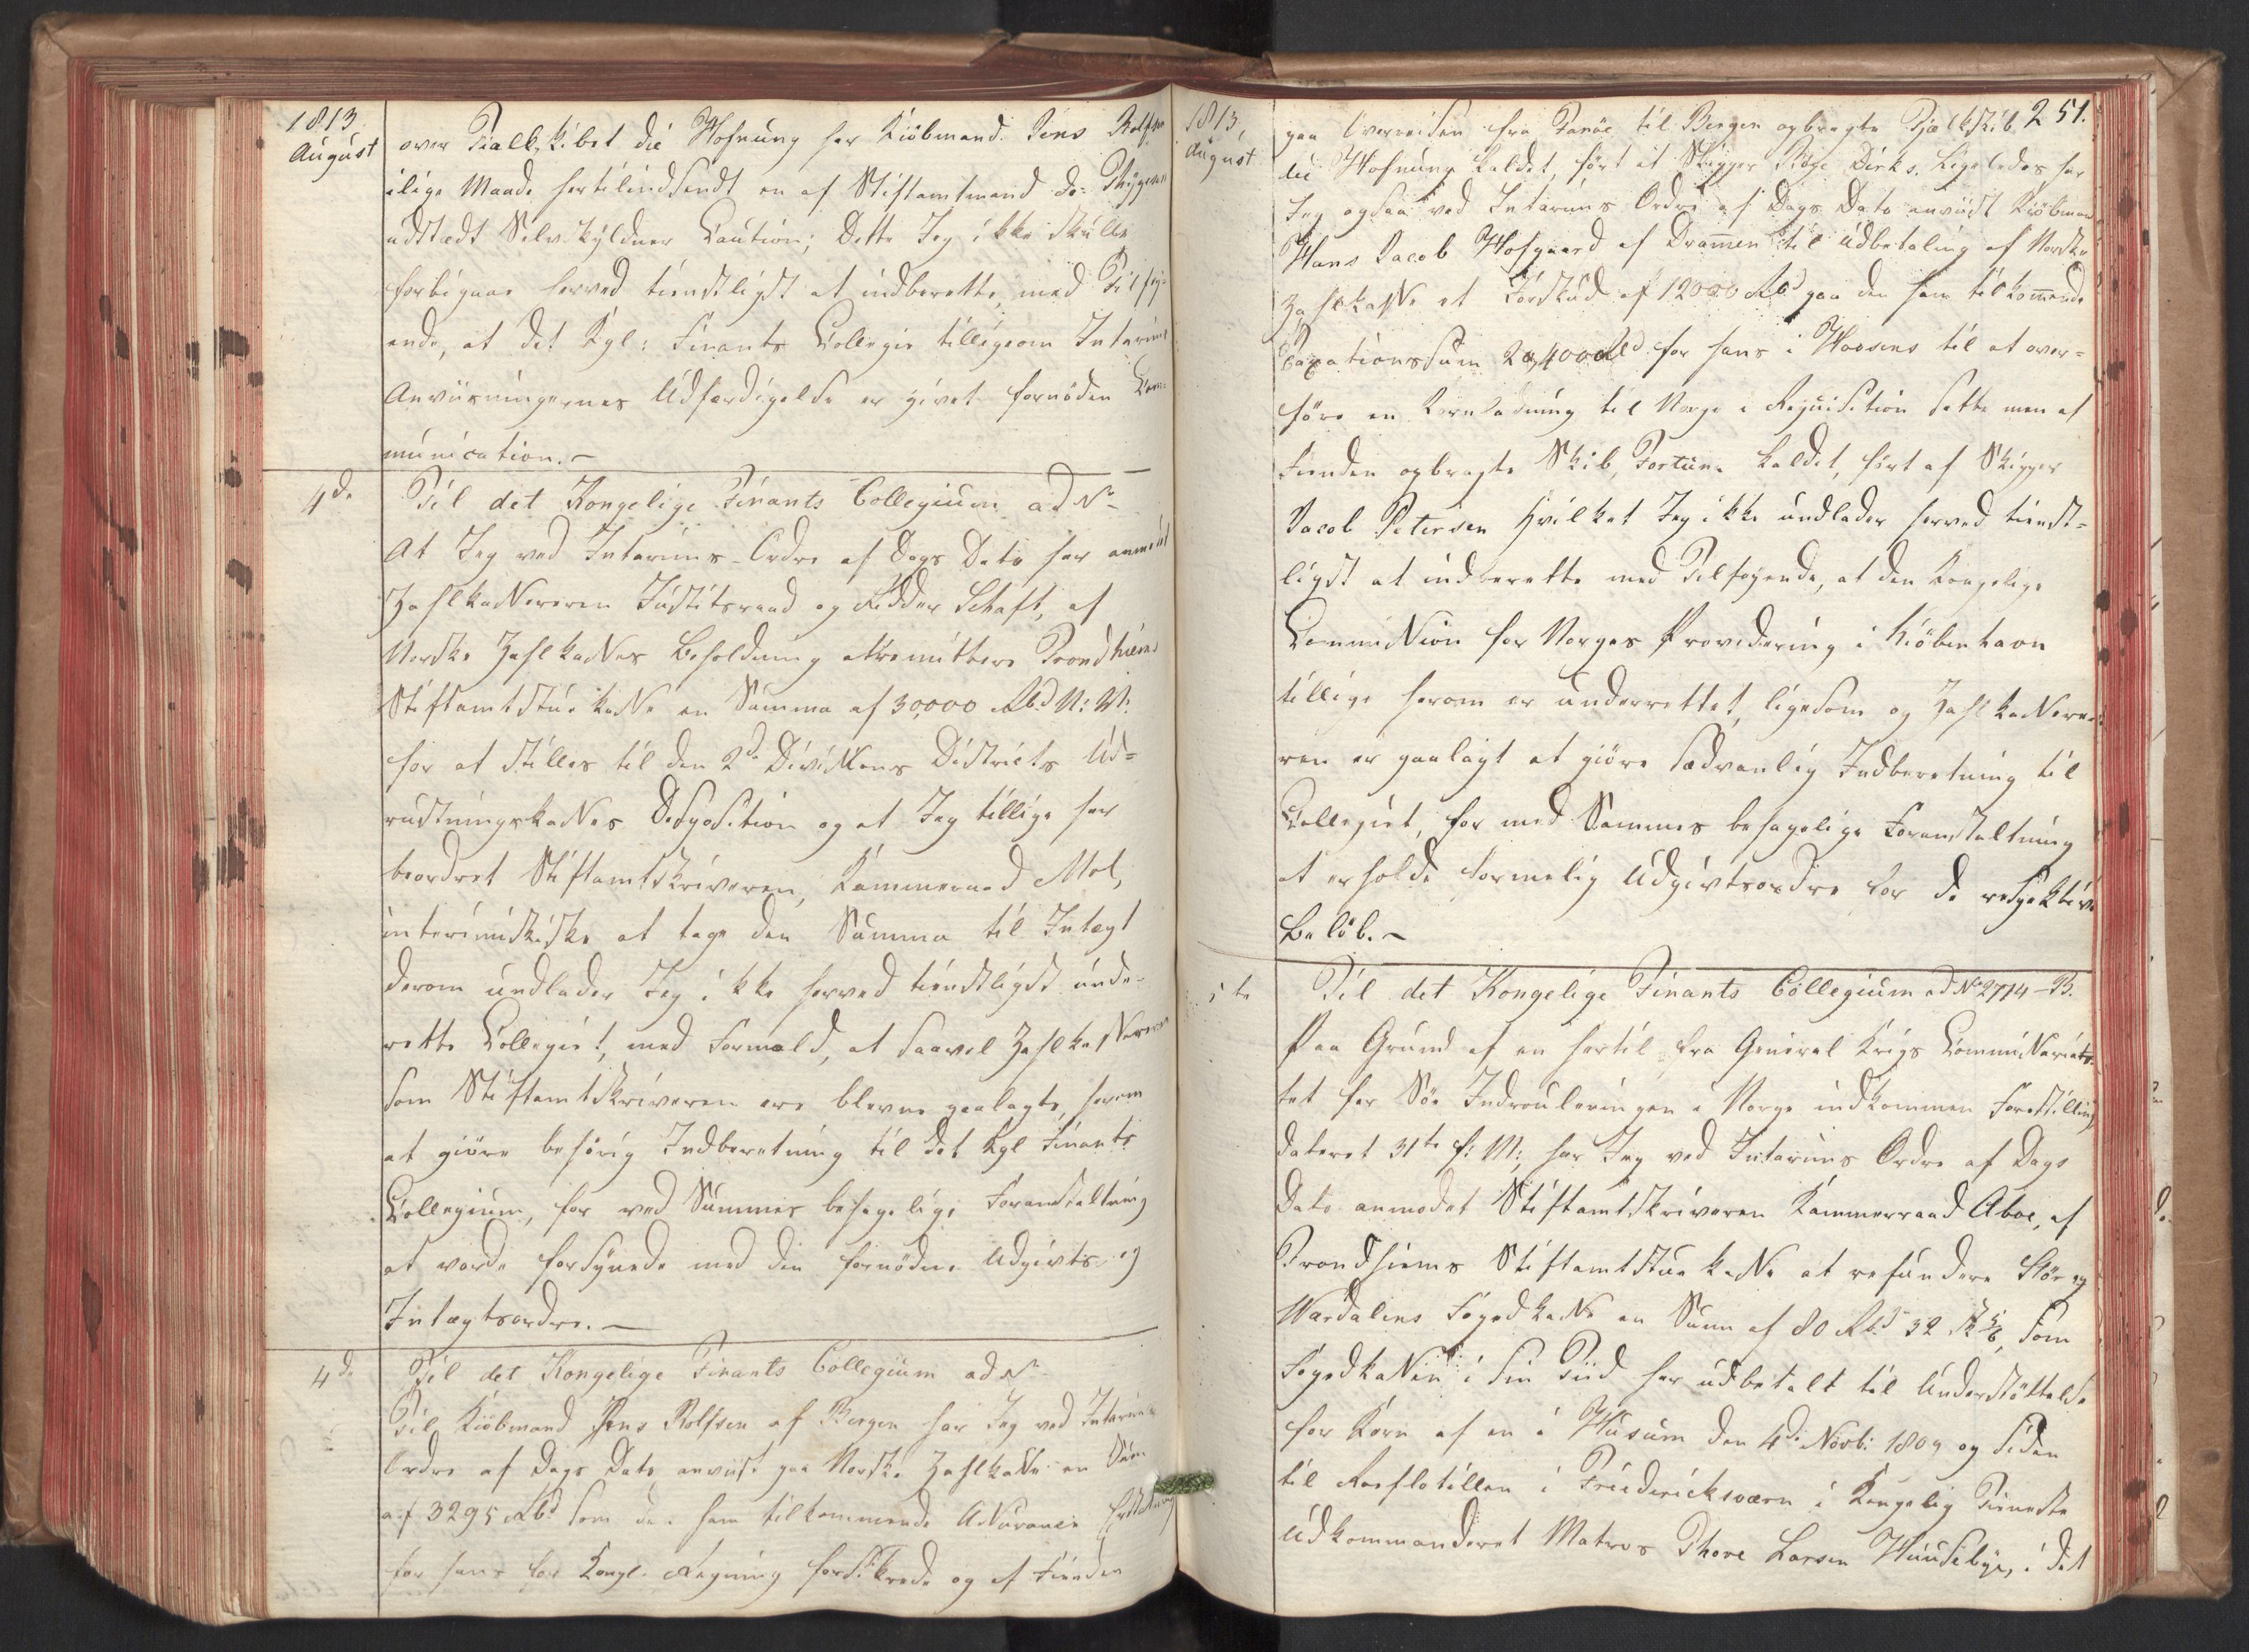 1813.
August
over Tialkskibet die Hofnung har Kiöbmand Jens Rolfsen
i lige Maade hertilindsendt en af Stiftamtmand de Thygesen
udstædt Selvskyldner Caution; Dette Jeg ikke skulle
forbigaae herved tienstligst at indberette, med Tilføi-
ende, at det Kgl: Finants Collegie tilligeom Interims
Anviisningernes Udfærdigelse er givet fornøden Com-
munication.-
4de
Til det Kongelige Finants Collegium ad No-
At Jeg ved Interims-Ordre af Dags Dato har anmodet
Zahlkasserer Justitsraad og Ridder Schaft, af
Norske Zahlkasses Beholdning at remittere Trondhiems
Stiftamtstue kasse en Summa af 30,000 Rbd N: V:
for at stilles til den 2de Divisions Districts Ud=
rustningskasses Disposition og at Jeg tillige har
beordret Stiftamtskriveren, Kammerraad Mot,
interimistiske at tage den Summa til Intægt
derom undlader Jeg ikke herved tienstligst unde-
rette Collegiet, med Formæld, at saavel Zahlkassereren
som Stiftamtskriveren ere blevne paalagte, herom
at giöre behörig Indberetning til det Kgl Finants
Collegium, for ved Sammes behagelige Foranstaltning
at vorde forsynede med den fornödne Udgivts- og
Intægtsordre.-
4de
Til det Kongelige Finants Collegium ad No
Til Kiöbmand Jens Rolfsen af Bergen har Jeg ved Interims
Ordre af Dags Dato anviist paa Norske Zahlkasse en Sum
af 3295 Rbd som den ham tilkommende Assurance Erstatning
for hans for Kongl. Regning forsikrede og af Fienden
1813,
August
251.
paa Overreisen fra Fanöe til Bergen opbragte Tjalkskib
die Hofnung kaldet, fört af Skipper Dirks. Ligeledes har
Jeg ogsaa ved Interims Ordre af Dags Dato anviist Kiöbmand
Hans Jacob Hofgaard af Drammen til Udbetaling af Norske
Zahlkasse et Forskud af 12000 Rbd paa den ham tilkommende
Taxationssum 20,400 Rbd for hans i Horsens til at over=
före en Kornladning til Norge i Requisition satte men af
Fienden opbragte Skib, Fortuna kaldet, fört af Skipper
Jacob Petersen Hvilket Jeg ikke undlader herved tienst=
ligst at indberette med Tilføyende, at den Kongelige
Commission for Norges Providering i Kiöbenhavn
tillige herom er underrettet, ligesom og Zahlkassere-
ren er paalagt at giöre sædvanlig Indberetning til
Collegiet, for med Sammes behagelige Foranstaltning
at erholde formelig Udgivtsordre for de respektive
Belöb.-
5te
Til det Kongelige Finants Collegium ad No 2714-B.
Paa Grund af en hertil fra General Krigs Commissariats-
tet for Söe Indroulleringen i Norge indkommen Forestilling
dateret 31te f: M:, har Jeg ved Interims Ordre af Dags
Dato anmodet Stiftamtskriveren Kammerraad Aboe, af
Trondhiems Stiftamtstue kasse at refundere Stör og
Værdalens Fogedkasse en Sum af 80 Rbd 32 s, som
Fogedkassen i sin Tiid har udbetalt til Understöttelse
for Korn af en i Husum den 4de Novbr: 1809 og siden
til Roeflotillen i Friedericksværn i Kongelig Tieneste
udkommanderet Matros Thore Larsen Huuseby, i det